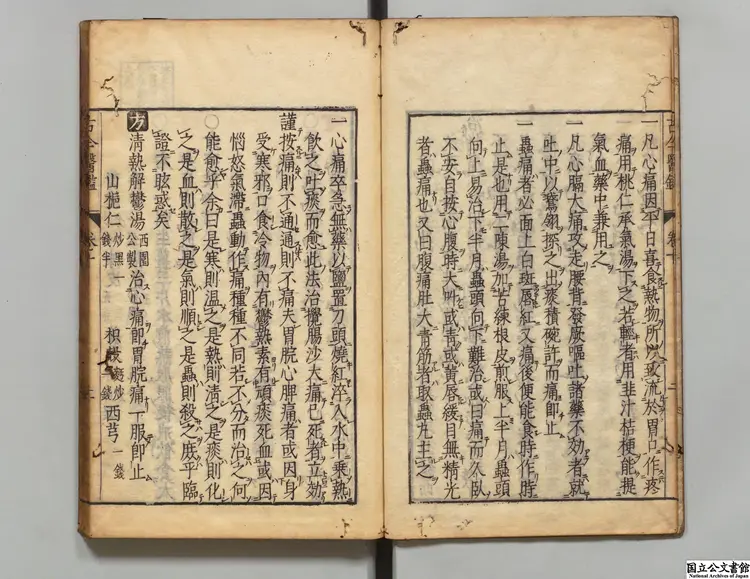 一凡心痛因平日喜食熱物所以致流於胃口作疼
痛用桃仁承氣湯下之若輕者用韭汁桔梗能提
氣血藥中兼用之
一凡心膈大痛攻走腰背發厥嘔吐諸藥不効者就
吐中以鵞翎探之出痰積碗許而痛即止
一蟲痛者必面上白斑唇紅又痛後便能食時作時
止是也用二陳湯加苦練根皮煎服上半月蟲頭
向上易治下半月蟲頭向下難治或曰痛而不臥
不安自按心腹時大叫或青或黃唇緩目無精光
者蟲痛也又曰腹痛肚大青筋者取蟲丸主之
一心痛卒急無藥以鹽置刀頭燒紅淬入水中乗熱
飲之吐痰而愈此法治攪腸沙大痛已死者立効
謹按痛則不通通則不痛夫胃脘心脾痛者或因身
受寒邪口食冷物內有鬱熱素有頑痰死血或因
惱怒氣滯蟲動作痛種種不同若不分而治之何
○能愈乎余曰是寒則温之是熱則清之是痰則化
之是血則散之是氣則順之是蟲則殺之庶乎臨
證不眩惑矣
方清熱解鬱湯西園公製治心痛即胃脘痛一服即止
山梔仁炒黑錢半枳殼麩炒一錢西芎一錢
古今醫鑑
国立公文書館
National Archives of Japan